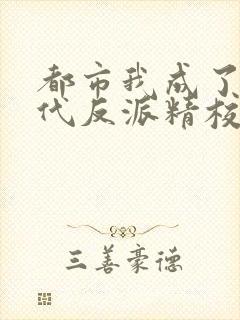 都市我成了
代反派精校
三善豪德